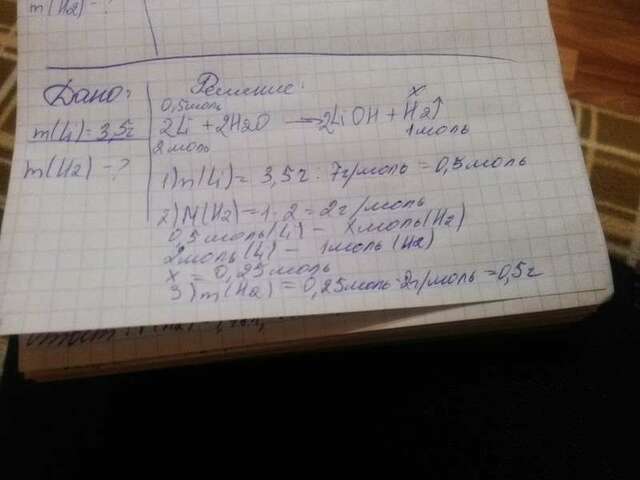 m(H2) - ?
Дано:
m(Li) = 3,5г
m(H2) - ?
Решение:
0,5 моль x
2Li + 2H2O → 2LiOH + H2↑
2 моль 1 моль
1) n(Li) = 3,5г : 7г/моль = 0,5 моль
2) M(H2) = 1 · 2 = 2г/моль
0,5 моль (Li) - x моль (H2)
2 моль (Li) - 1 моль (H2)
x = 0,25 моль
3) m(H2) = 0,25 моль · 2г/моль = 0,5г